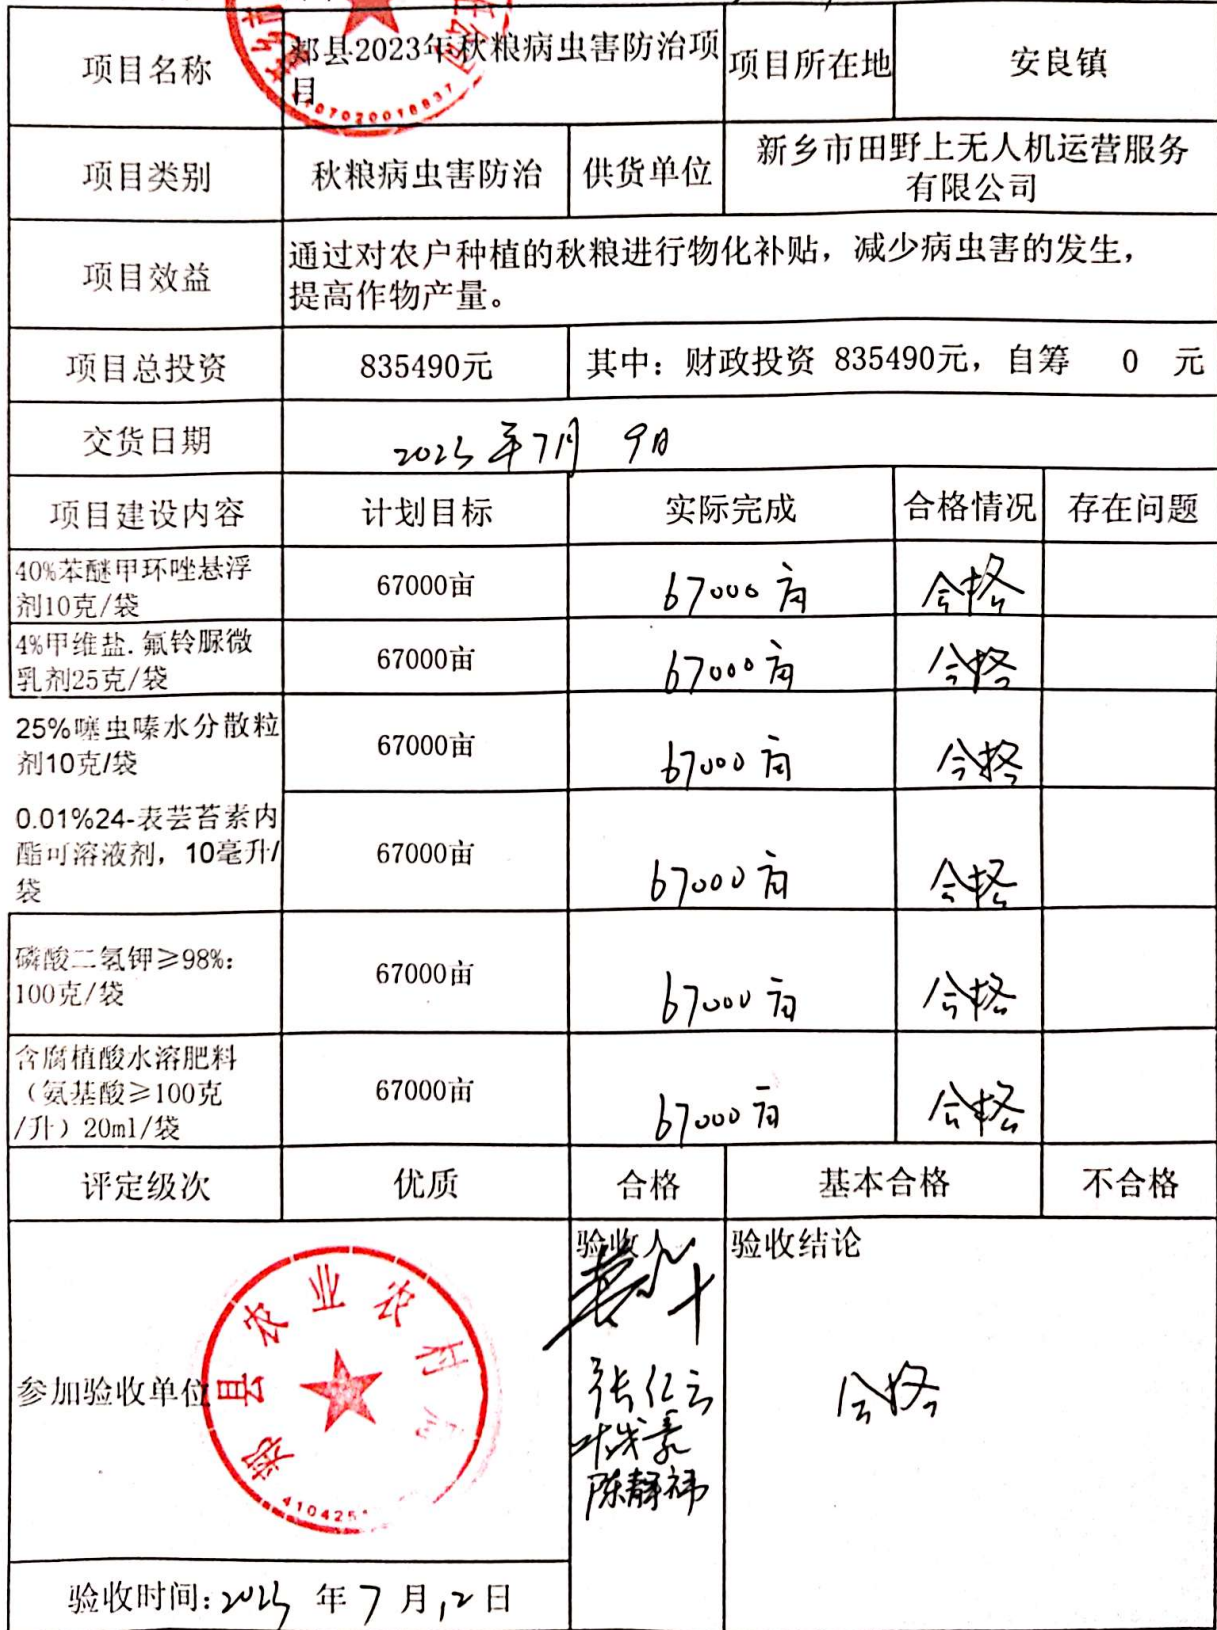 项目名称 郏县2023年秋粮病虫害防治项 项目所在地 安良镇
目
项目类别 秋粮病虫害防治 供货单位 新乡市田野上无人机运营服务
有限公司
项目效益 通过对农户种植的秋粮进行物化补贴，减少病虫害的发生，
提高作物产量。
项目总投资 835490元 其中：财政投资 835490元，自筹 0 元
交货日期 2023年7月9日
项目建设内容 计划目标 实际完成 合格情况 存在问题
40%苯醚甲环唑悬浮
剂10克/袋 67000亩 67000亩 合格
4%甲维盐.氟铃脲微
乳剂25克/袋 67000亩 67000亩 合格
25%噻虫嗪水分散粒
剂10克/袋 67000亩 67000亩 合格
0.01%24-表芸苔素内
酯可溶液剂，10毫升/
袋 67000亩 67000亩 合格
磷酸二氢钾≥98%：
100克/袋 67000亩 67000亩 合格
含腐植酸水溶肥料
（氨基酸≥100克
/升）20ml/袋 67000亩 67000亩 合格
评定级次 优质 合格 基本合格 不合格
参加验收单位
郏县农业农村局
验收人
张仁云
陈静祎
验收结论
合格
验收时间：2023年7月12日